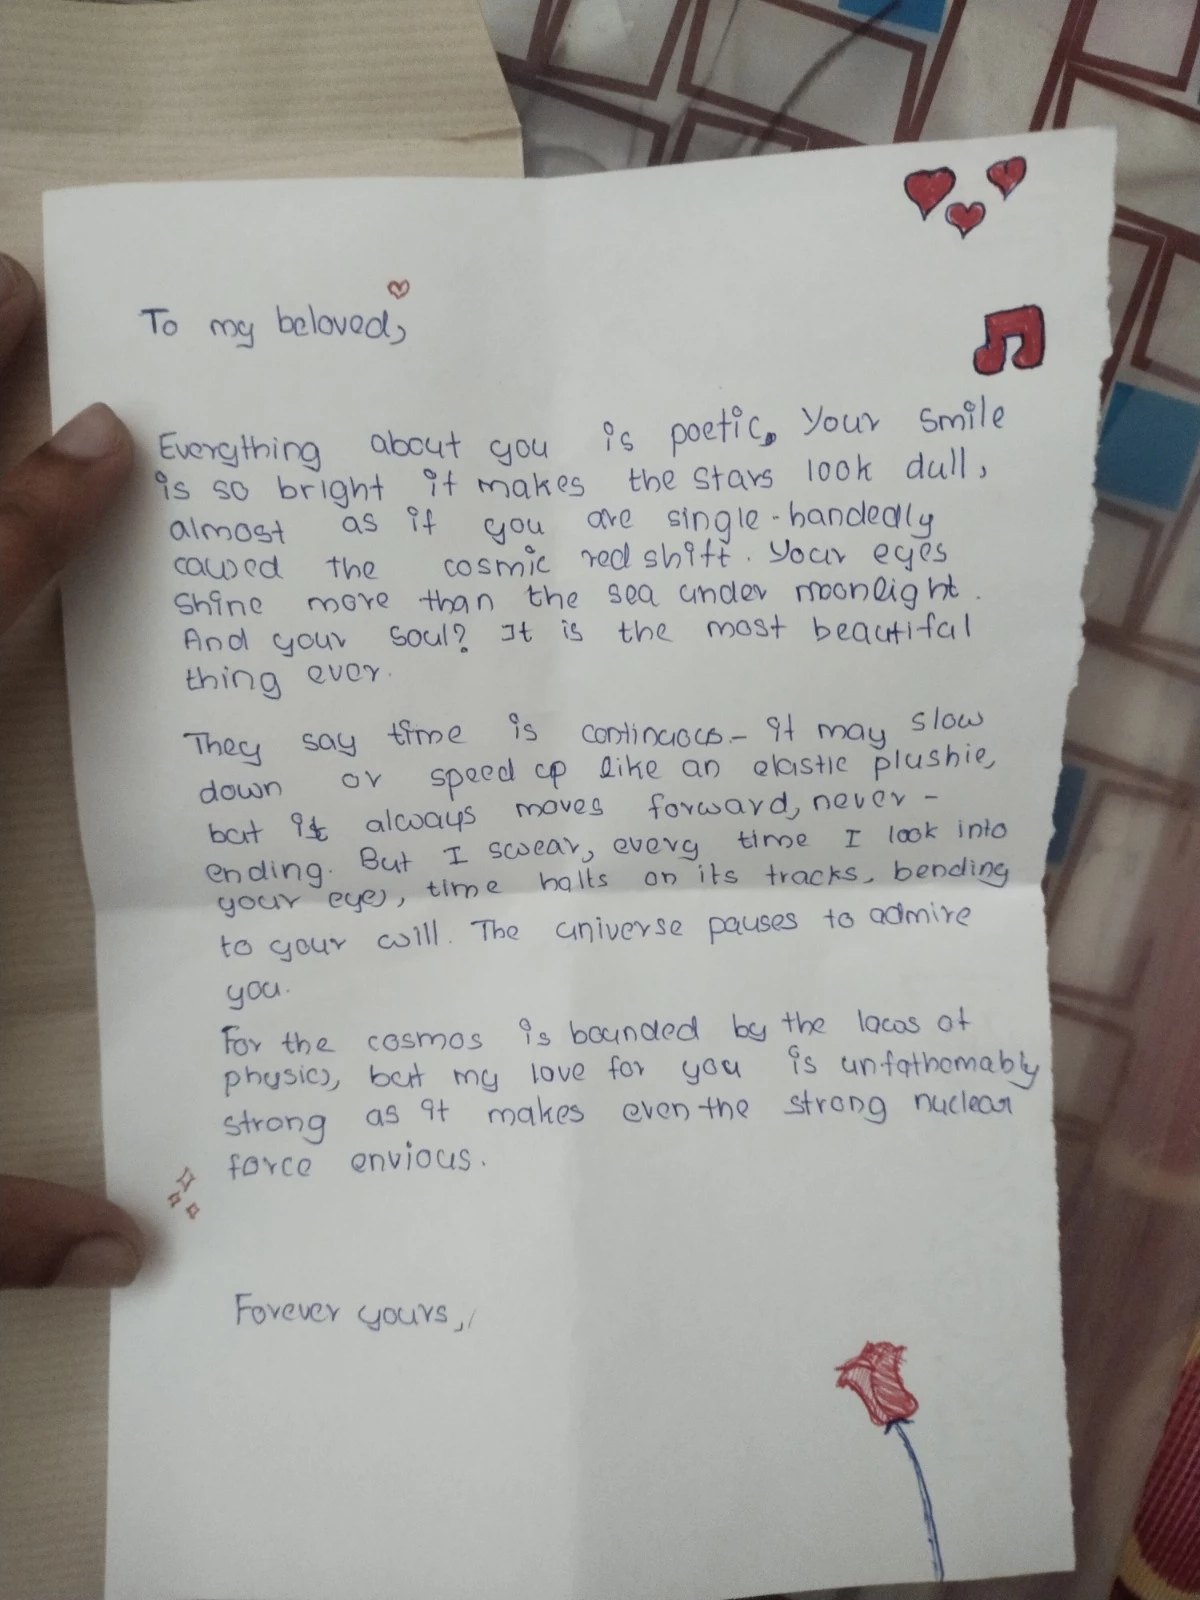 To my beloved,
Everything about you is poetic. Your smile
is so bright it makes the stars look dull,
almost as if you are single-handedly
caused the cosmic redshift. Your eyes
shine more than the sea under moonlight.
And your soul? It is the most beautiful
thing ever.
They say time is continuous - it may slow
down or speed up like an elastic plushie,
but it always moves forward, never-
ending. But I swear, every time I look into
your eyes, time halts on its tracks, bending
to your will. The universe pauses to admire
you.
For the cosmos is bounded by the laws of
physics, but my love for you is unfathomably
strong as it makes even the strong nuclear
force envious.
Forever yours,